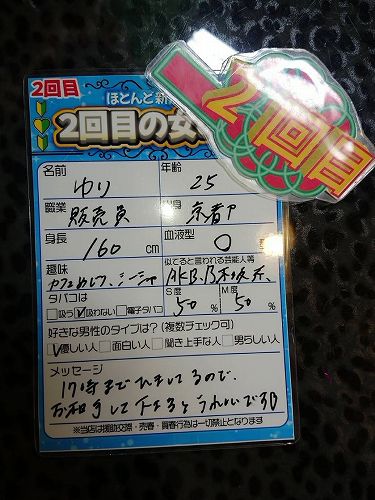 2回目
ほとんど新
2回目の女
2回目
名前 ゆり 年齢 25
職業 販売員 身 京都P
身長 160 cm 血液型 O
趣味 カフェめぐり、シーシャ
似てると言われる芸能人等 AKB、乃木坂系、
タバコは S度 M度
□吸う ☑吸わない □電子タバコ 50% 50%
好きな男性のタイプは?(複数チェック可)
☑優しい人 □面白い人 □聞き上手な人 □男らしい人
メッセージ
17時までひましてるので、
お相手して下さるとうれしいです
※当店は援助交際・売春・買春行為は一切禁止となります